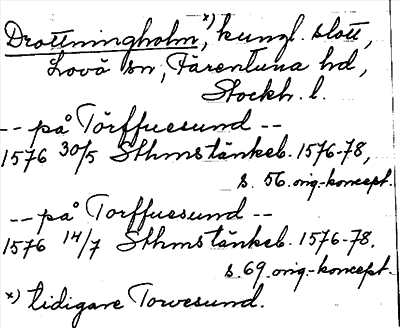 Drottningholm, x) kungl. slott,
Lovö sn, Färentuna hd,
Stockh. l.
-- på Törffuesund --
1576 30/5 Sthmstänkeb. 1576-78,
s. 56. orig.-koncept.
-- på Torffuesund --
1576 14/7 Sthmstänkeb. 1576-78.
s. 69. orig.-koncept.
x) tidigare Torvesund.